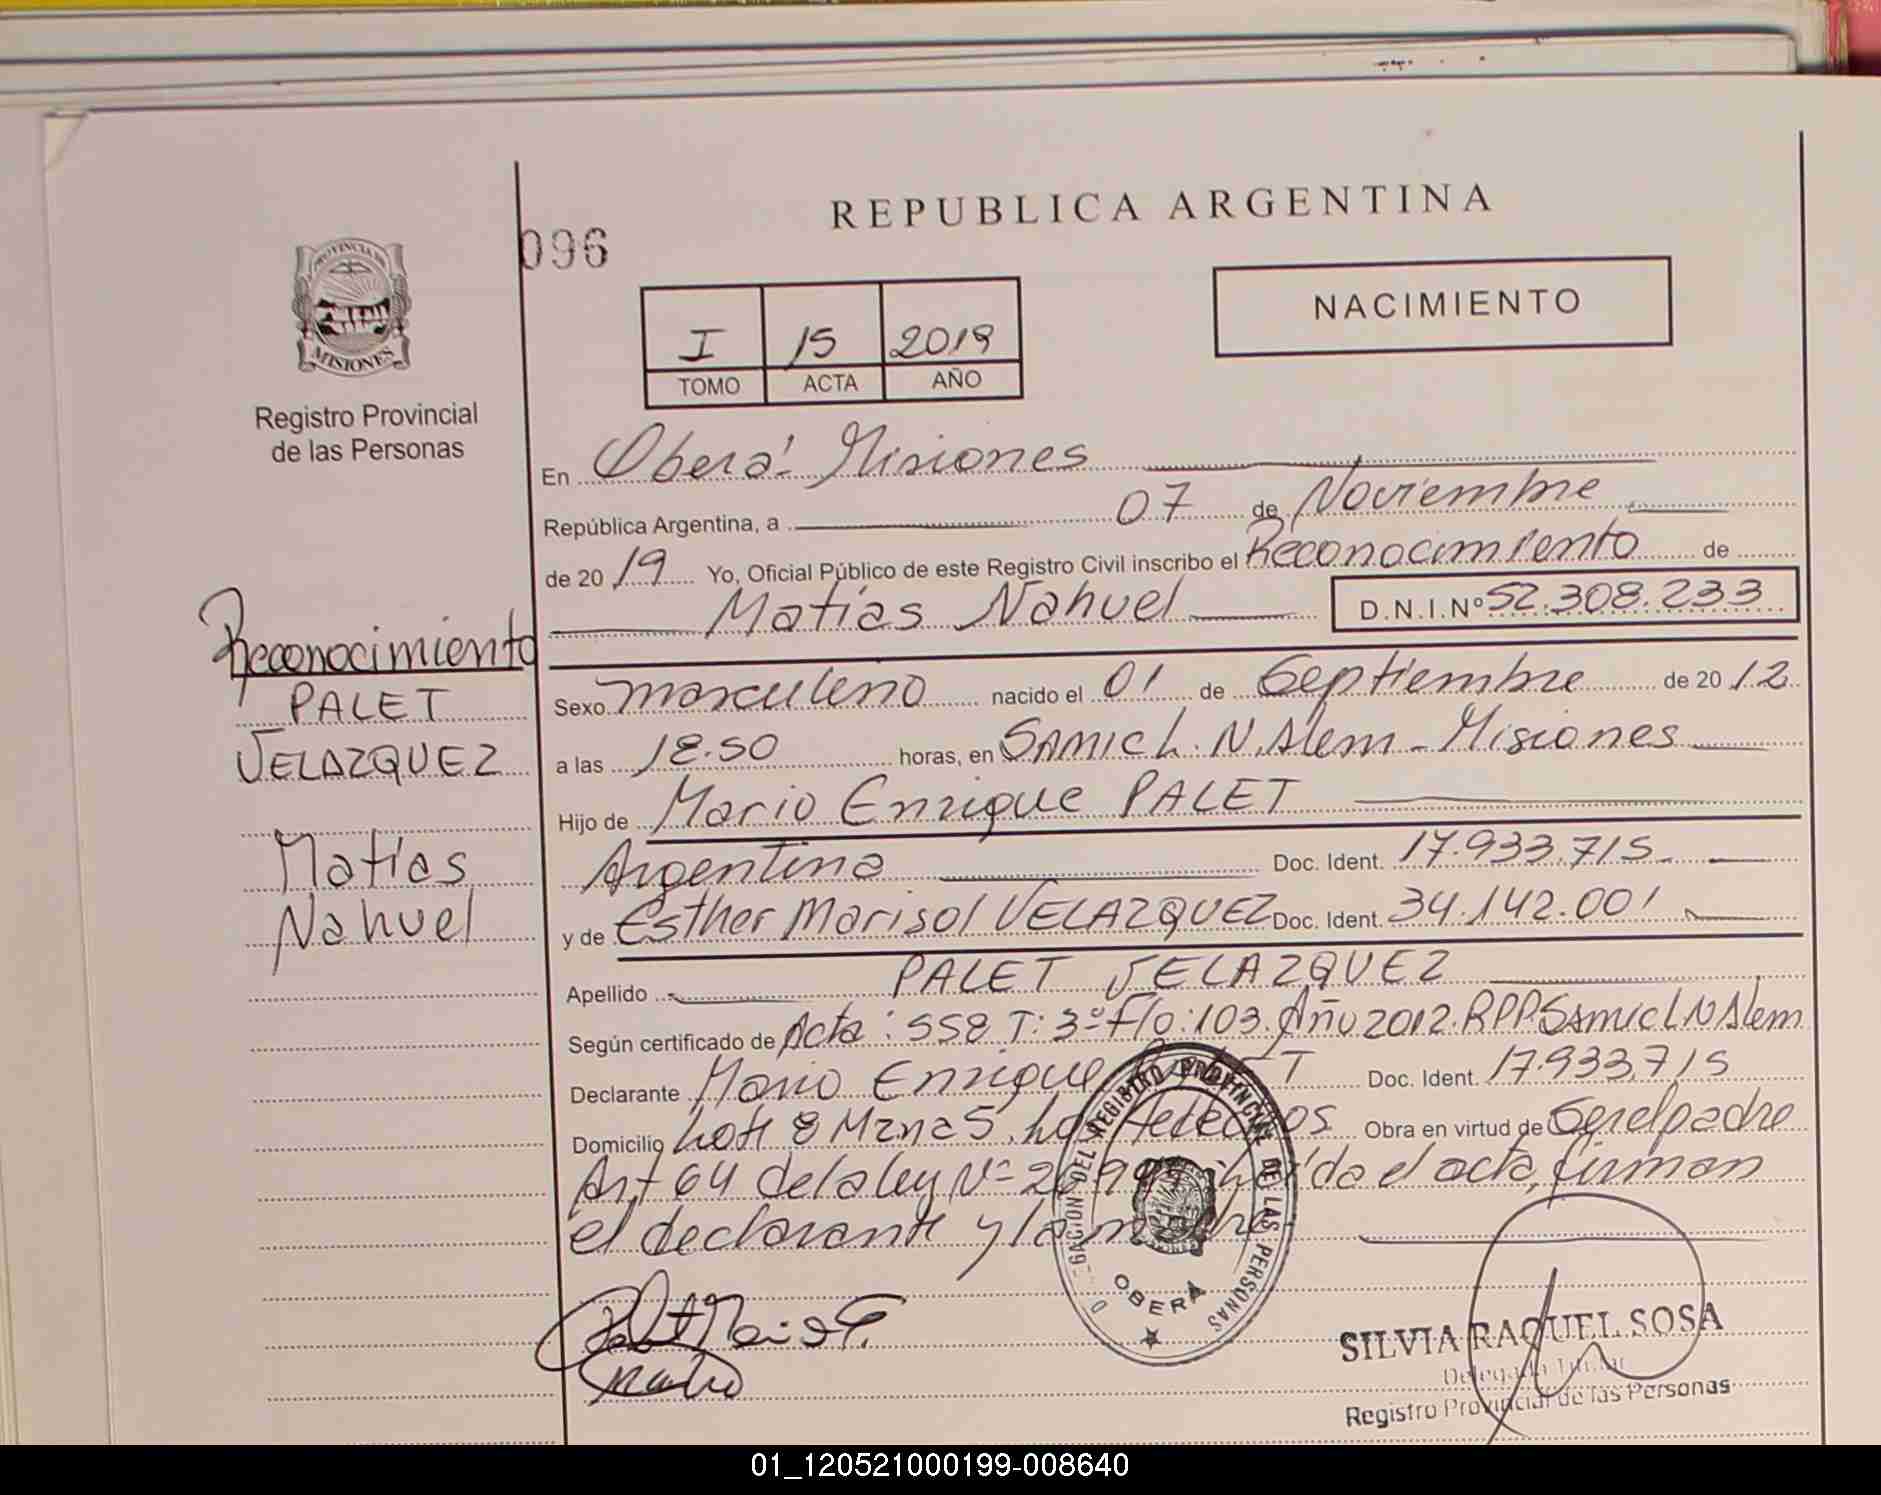 REPUBLICA ARGENTINA
096
NACIMIENTO
I 15 2019
TOMO ACTA AÑO
PROVINCIA DE
MISIONES
Registro Provincial
de las Personas
En Oberá - Misiones
República Argentina, a 07 de Noviembre
de 20 19 Yo, Oficial Público de este Registro Civil inscribo el Reconocimiento de
Matías Nahuel D.N.I.Nº 52.308.233
Reconocimiento
PALET
VELAZQUEZ
Matías
Nahuel
Sexo masculino nacido el 01 de Septiembre de 20 12
a las 18.50 horas, en SAMIC L.N.Alem - Misiones
Hijo de Mario Enrique PALET
Argentina Doc. Ident. 17.933.715
y de Esther Marisol VELAZQUEZ Doc. Ident. 34.142.001
Apellido PALET VELAZQUEZ
Según certificado de Acta: 558 T: 3º Fº: 103. Año 2012. RPP. SAMIC L N Alem
Declarante Mario Enrique PALET Doc. Ident. 17.933.715
Domicilio Lote 8 Mzna 5, Los Obra en virtud de Ser el padre
Art 64 de la ley Nº 26.994 leída el acta, firman
el declarante y la madre
Palet Mario E.
DELEGACION DEL REGISTRO PROVINCIAL DE LAS PERSONAS
OBERA
SILVIA RAQUEL SOSA
Delegada Titular
Registro Provincial de las Personas
01_120521000199-008640